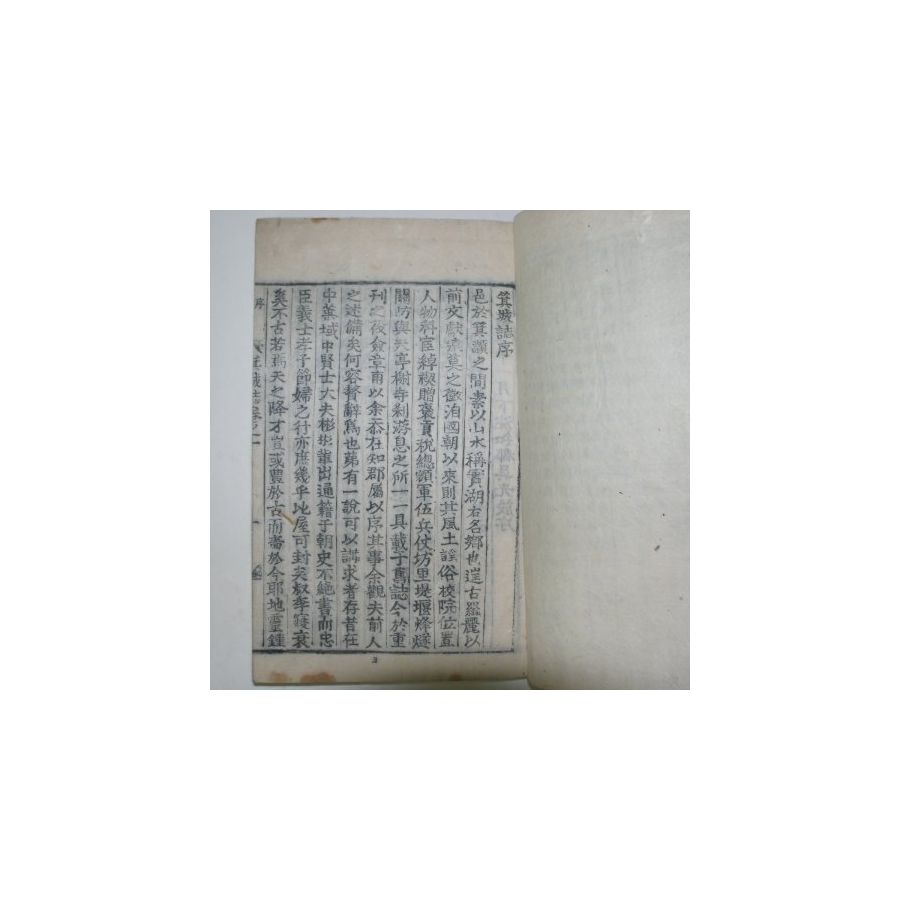 箕城誌序
邑於箕灝之間素以山水稱實湖右名鄉也逞古羅麗以
前文獻無莫之徵洎國朝以來則其風土謠俗校院位置
人物科宦綽禊贈褒貢稅總額軍伍兵仗坊里堤堰烽燧
關防與夫亭榭寺刹游息之所一一具載于舊誌今於重
刊之役僉章甫以余忝在知郡屬以序其事余觀夫前人
之述備矣何容贅辭爲也苐有一說可以講求者存昔在
中葉域中賢士大夫彬彬軰出通籍于朝史不絶書而忠
臣義士孝子節婦之行亦庶幾乎比屋可封矣叔季寢衰
奚不古若焉天之降才豈或豊於古而嗇於今耶地靈鍾
序
誌卷之一